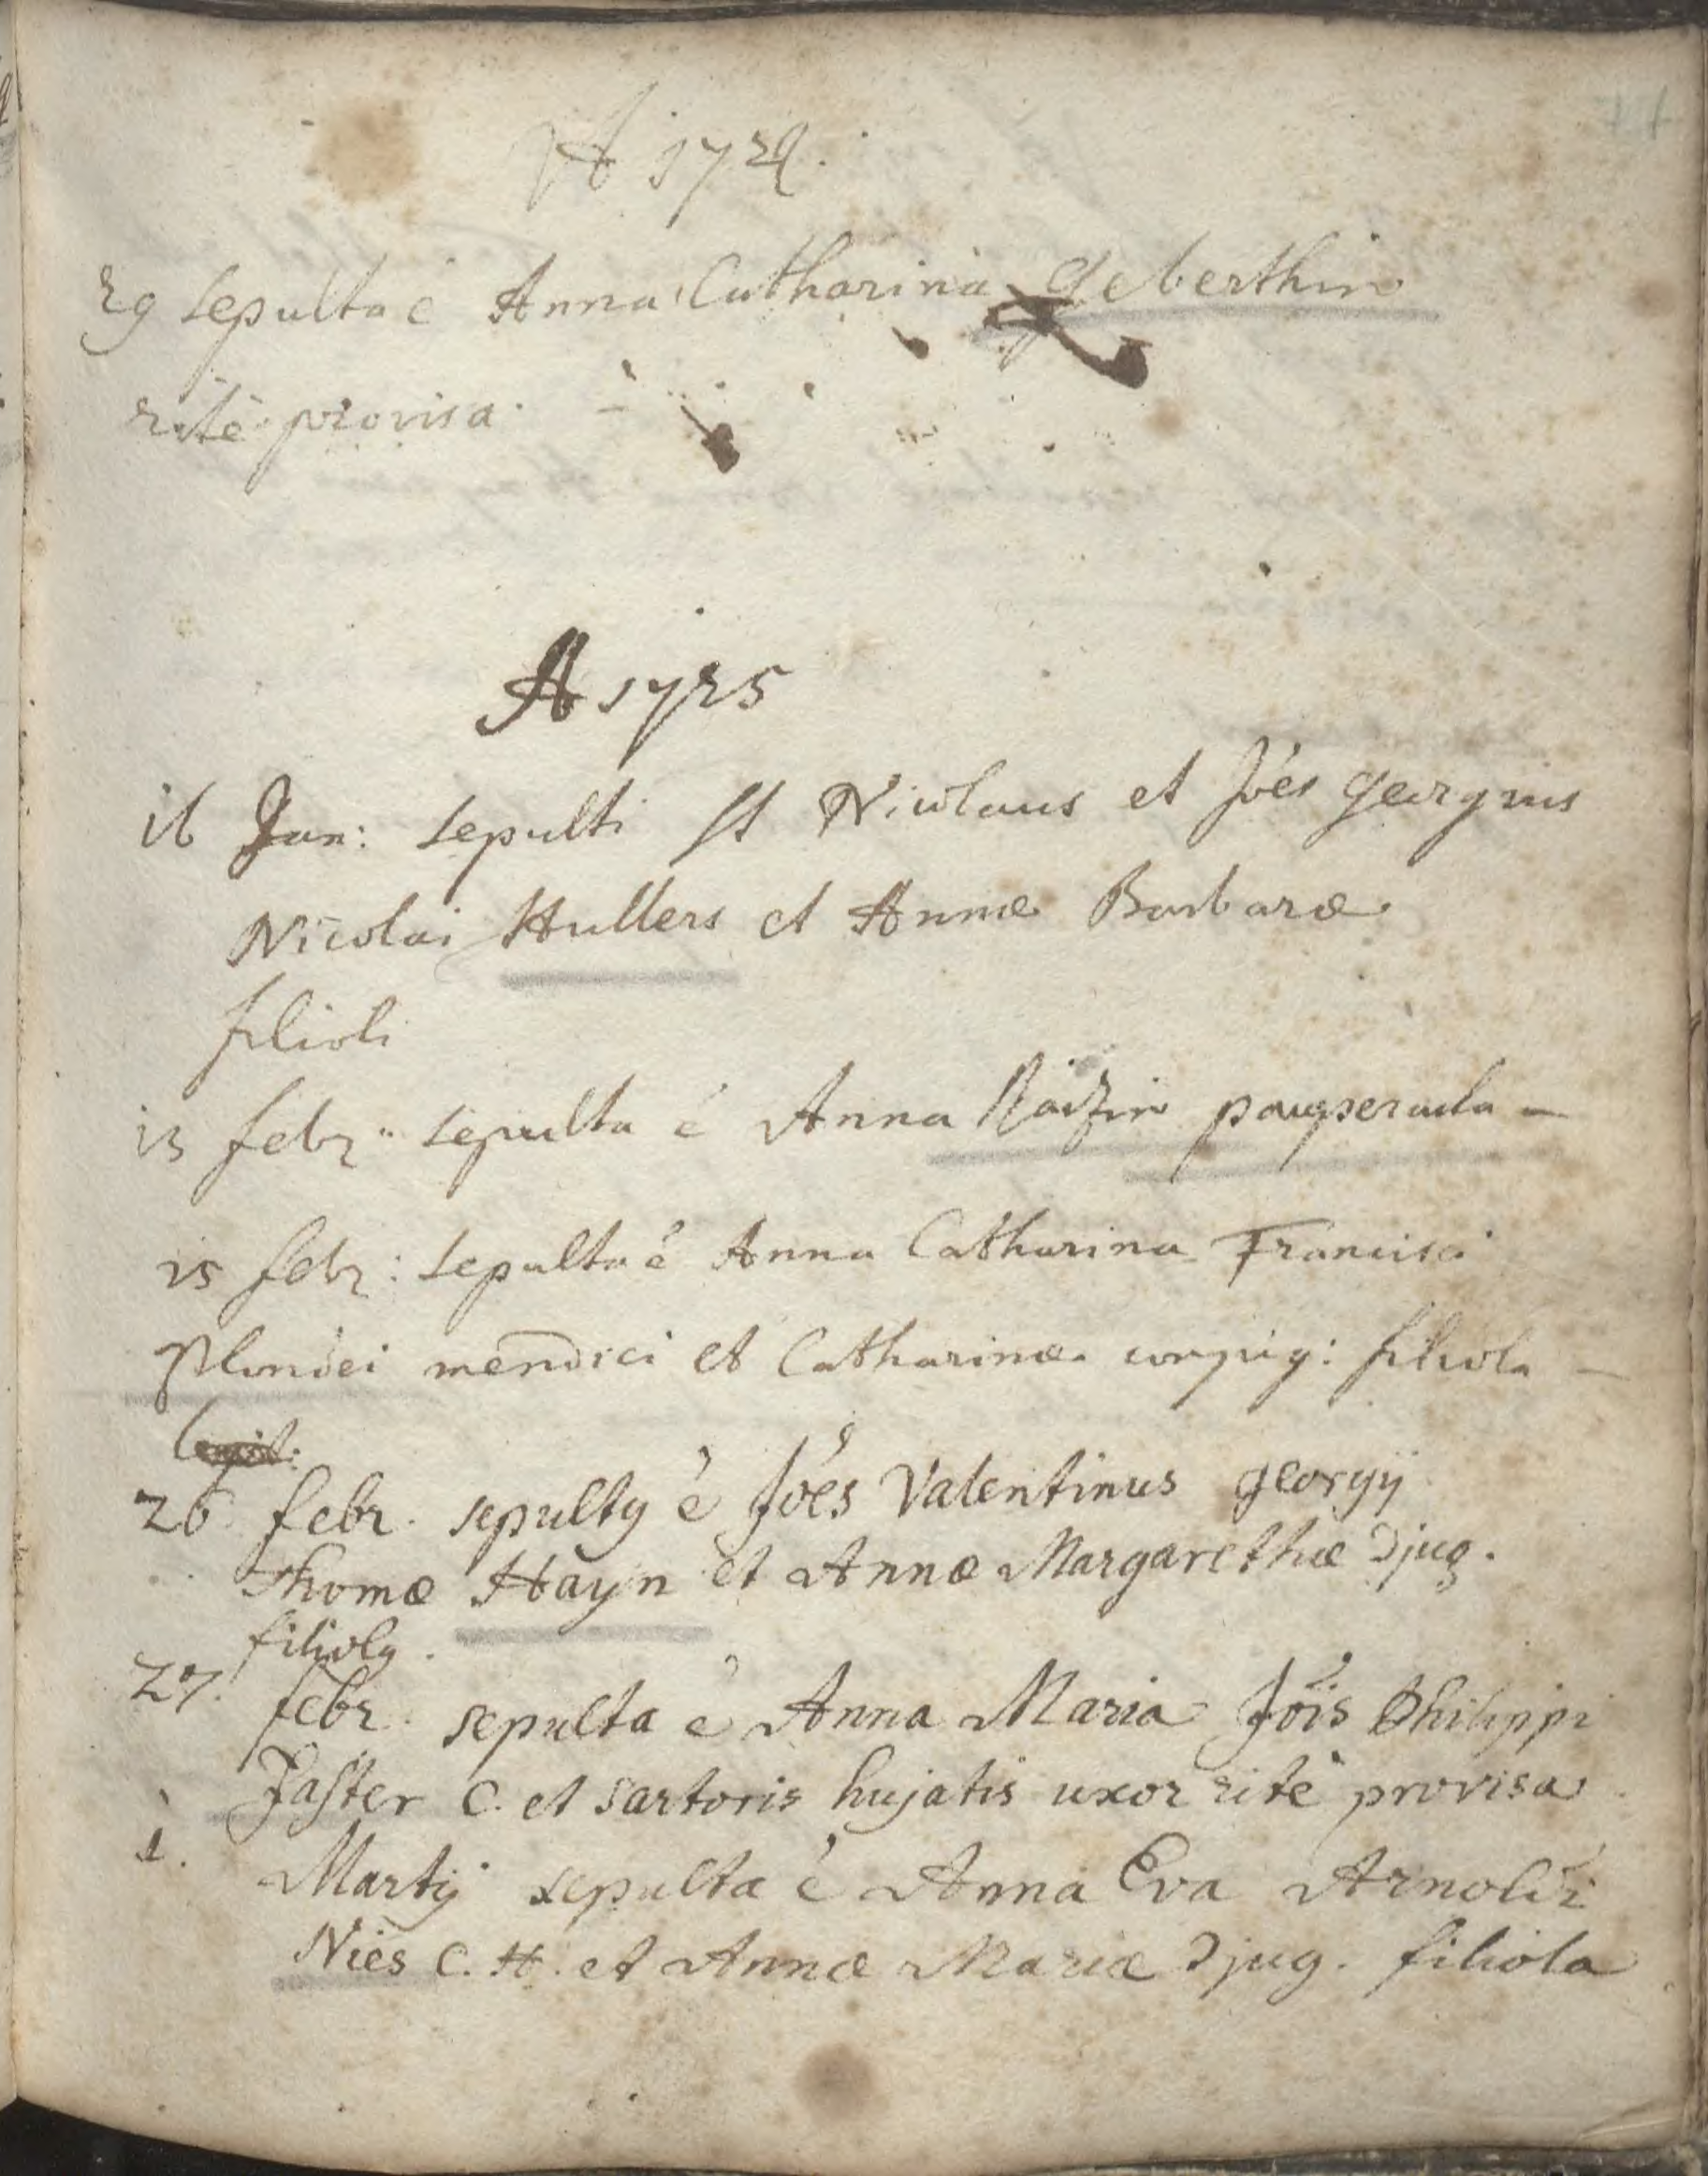 A 1724.
29 sepulta ē Anna Catharina Geberthin
ritè provisa.
A 1725
16 Jan: sepulti st Nicolaus et Joēs Georgius
Nicolai Hullers et Annæ Barbaræ
filioli
13 febr: sepulta ē Anna paupercula —
15 febr: sepulta ē Anna Catharina Francisci
mendici et Catharinæ conjug: filiola —
26. febr. sepultg ē Joēs Valentinus Georgÿ
Thomæ Haÿn et Annæ Margarethæ Ↄjug.
filiolg.
27. febr. sepulta ē Anna Maria Jōis Philippi
Faster C. et sartoris hujatis uxor ritè provisa
1. Martÿ sepulta ē Anna Eva Arnoldi
Nies C. H. et Annæ Mariæ Ↄjug. filiola